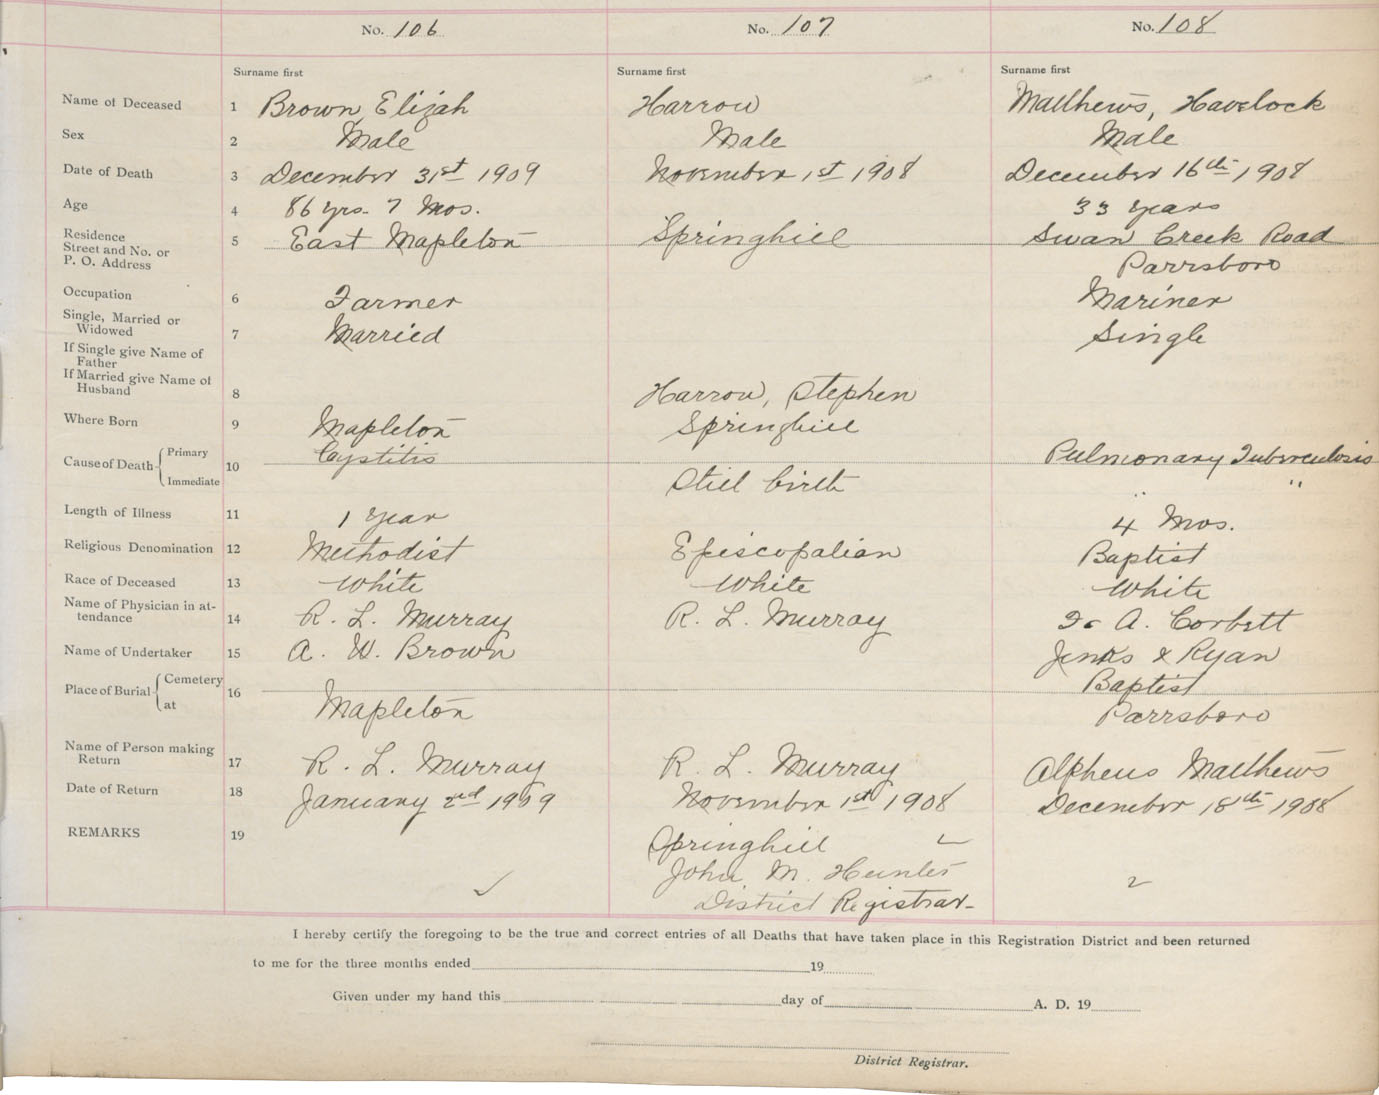 No. 106 No. 107 No. 108
Surname first Surname first Surname first
Name of Deceased 1 Brown, Elijah Harrow Matthews, Havelock
Sex 2 Male Male Male
Date of Death 3 December 31st 1909 November 1st 1908 December 16th 1908
Age 4 86 yrs. 7 Mos. 33 years
Residence
Street and No. or 5 East Mapleton Springhill Swan Creek Road
P. O. Address Parrsboro
Occupation 6 Farmer Mariner
Single, Married or
Widowed 7 Married Single
If Single give Name of
Father
If Married give Name of
Husband 8 Harrow, Stephen
Where Born 9 Mapleton Springhill
Cause of Death { Primary 10 Cystitis Pulmonary Tuberculosis
Immediate Still birth " "
Length of Illness 11 1 year 4 Mos.
Religious Denomination 12 Methodist Episcopalian Baptist
Race of Deceased 13 White White White
Name of Physician in at-
tendance 14 R. L. Murray R. L. Murray A. Corbett
Name of Undertaker 15 A. W. Brown Jenks & Ryan
Place of Burial { Cemetery 16 Baptist
at Mapleton Parrsboro
Name of Person making
Return 17 R. L. Murray R. L. Murray Alpheus Matthews
Date of Return 18 January 2nd 1909 November 1st 1908 December 18th 1908
REMARKS 19 Springhill
John M. Hunter
District Registrar
I hereby certify the foregoing to be the true and correct entries of all Deaths that have taken place in this Registration District and been returned
to me for the three months ended 19
Given under my hand this day of A. D. 19
District Registrar.